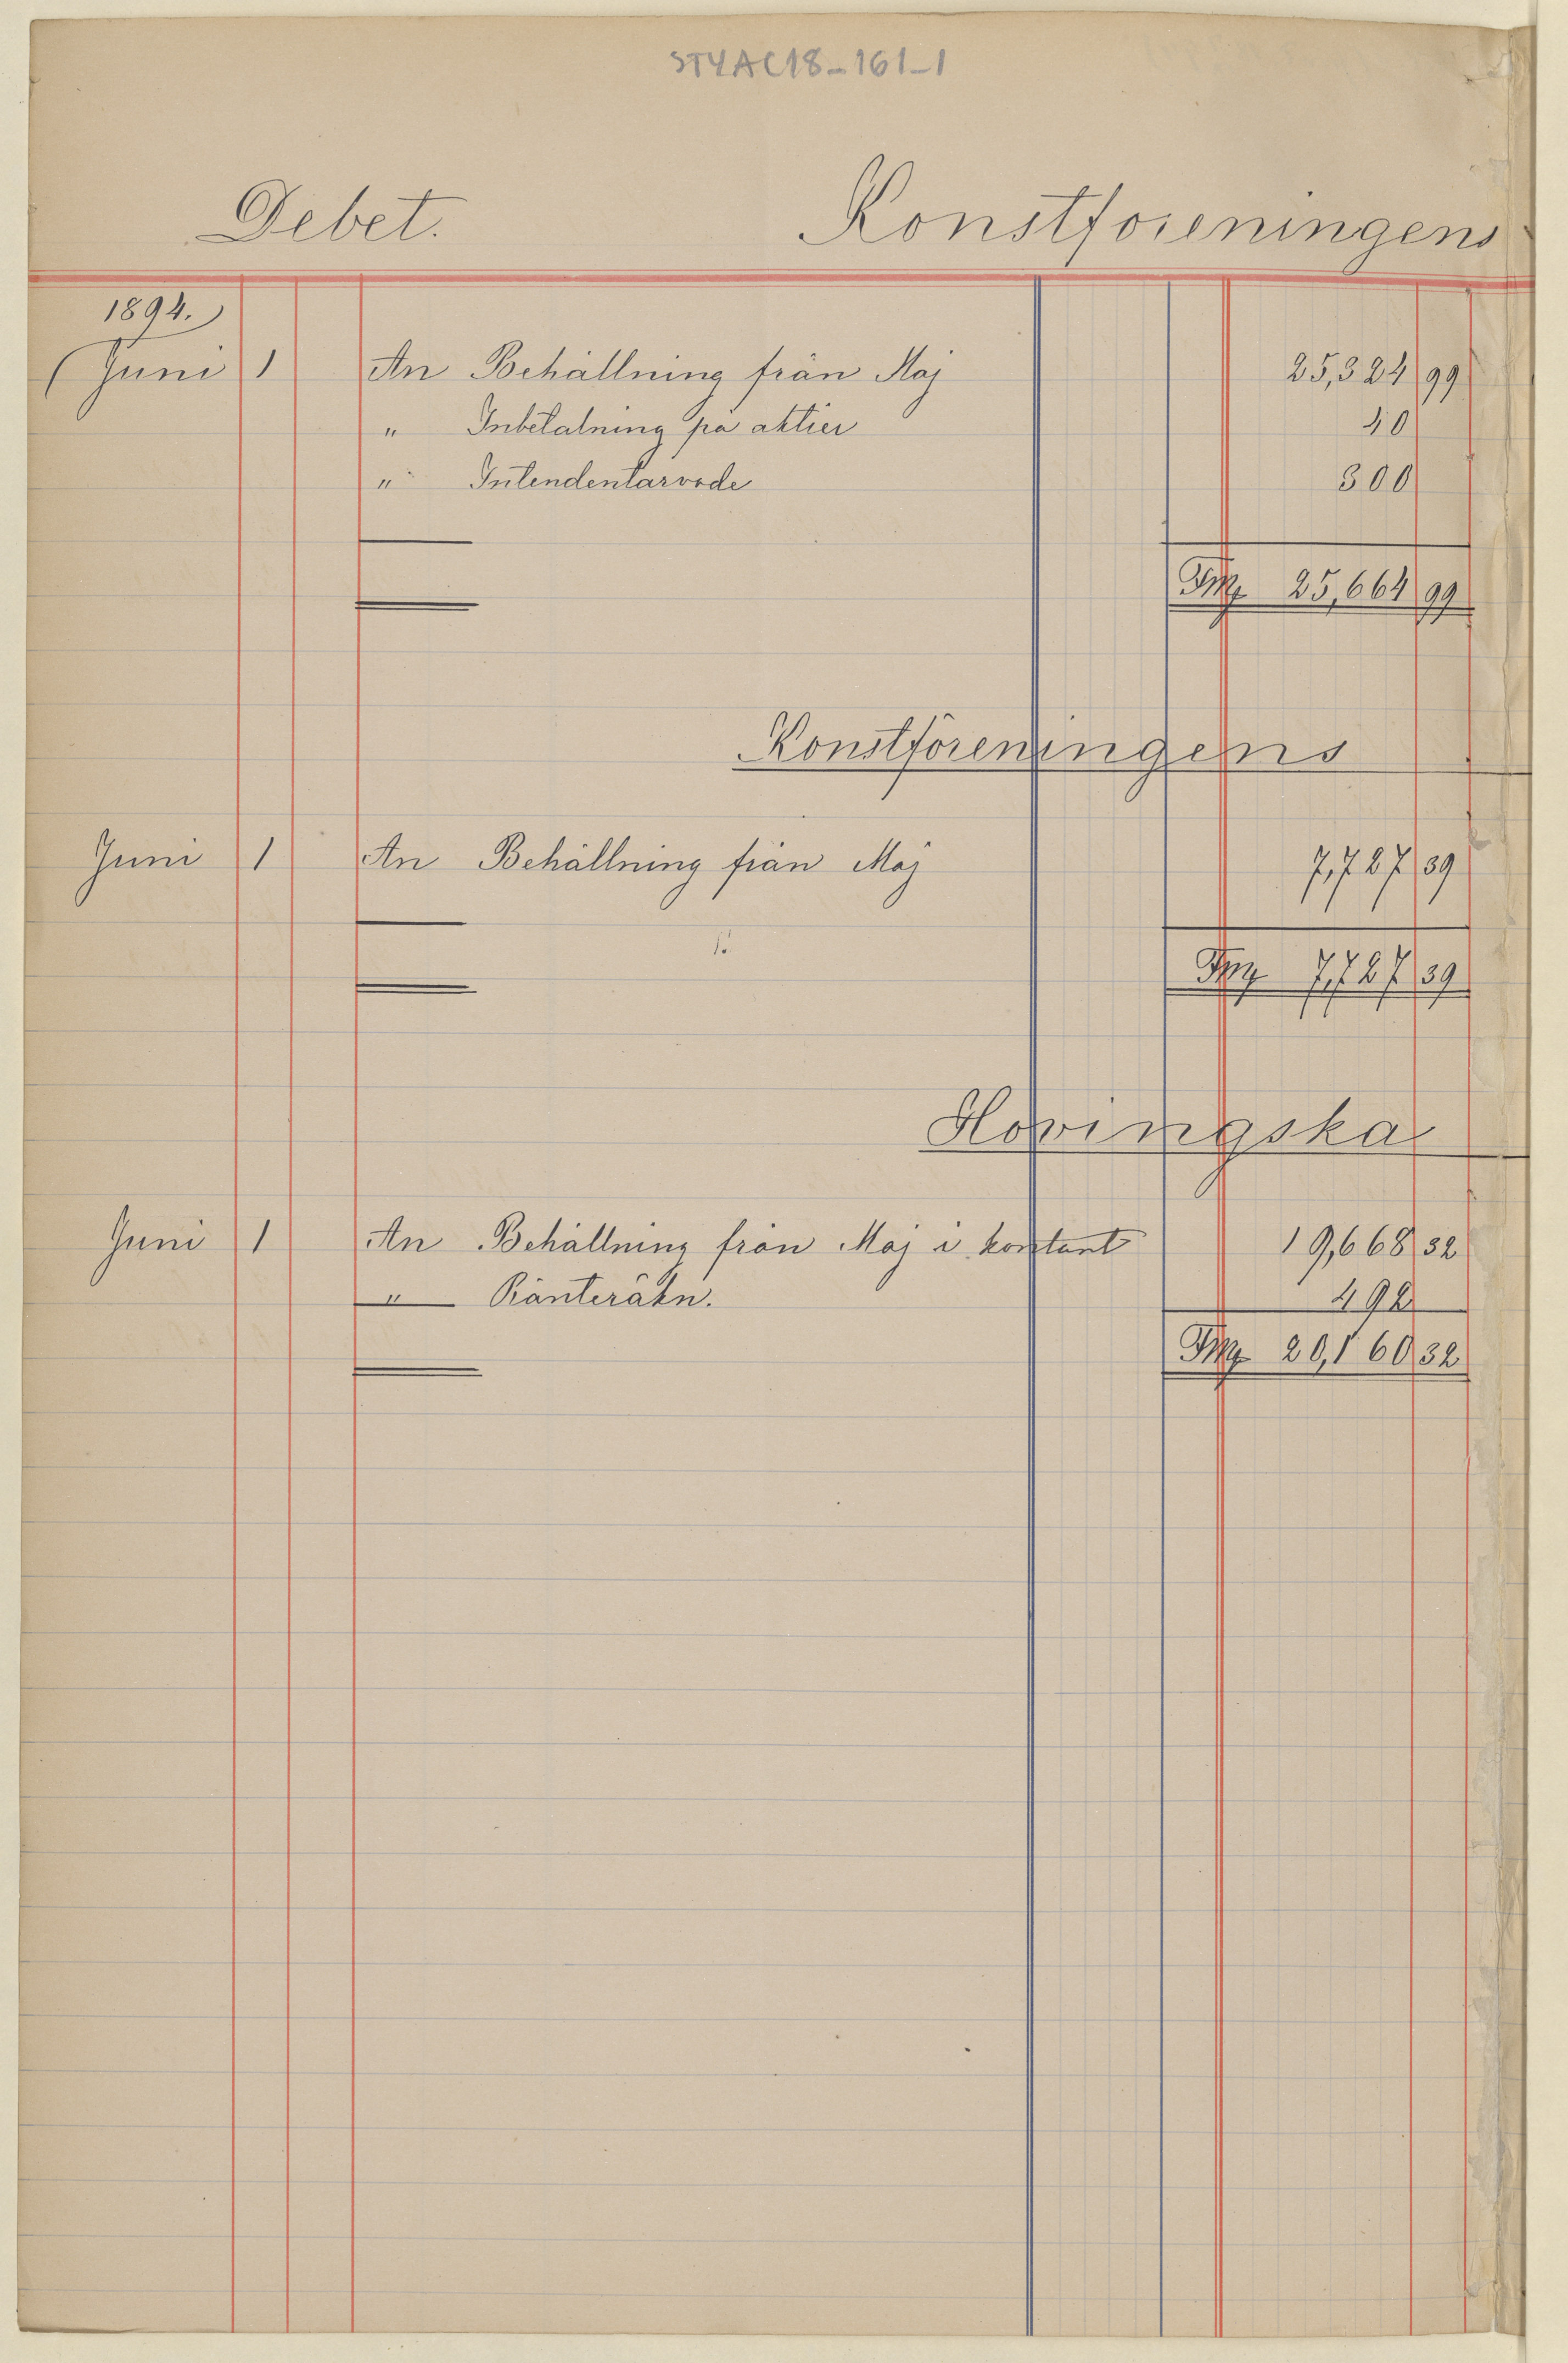 STYAC18-161-1
Debet. Konstföreningens
1894.
Juni 1 An Behållning från Maj 25,324 99
" Inbetalning på aktier 40
" Intendentarvode 300
Fmk 25,664 99
Konstföreningens
Juni 1 An Behållning från Maj 7,787 39
Fmk 7,787 39
Hovingska
Juni 1 An Behållning från Maj i kontant 19,668 32
" Ränteräkn. 492
Fmk 20,160 32